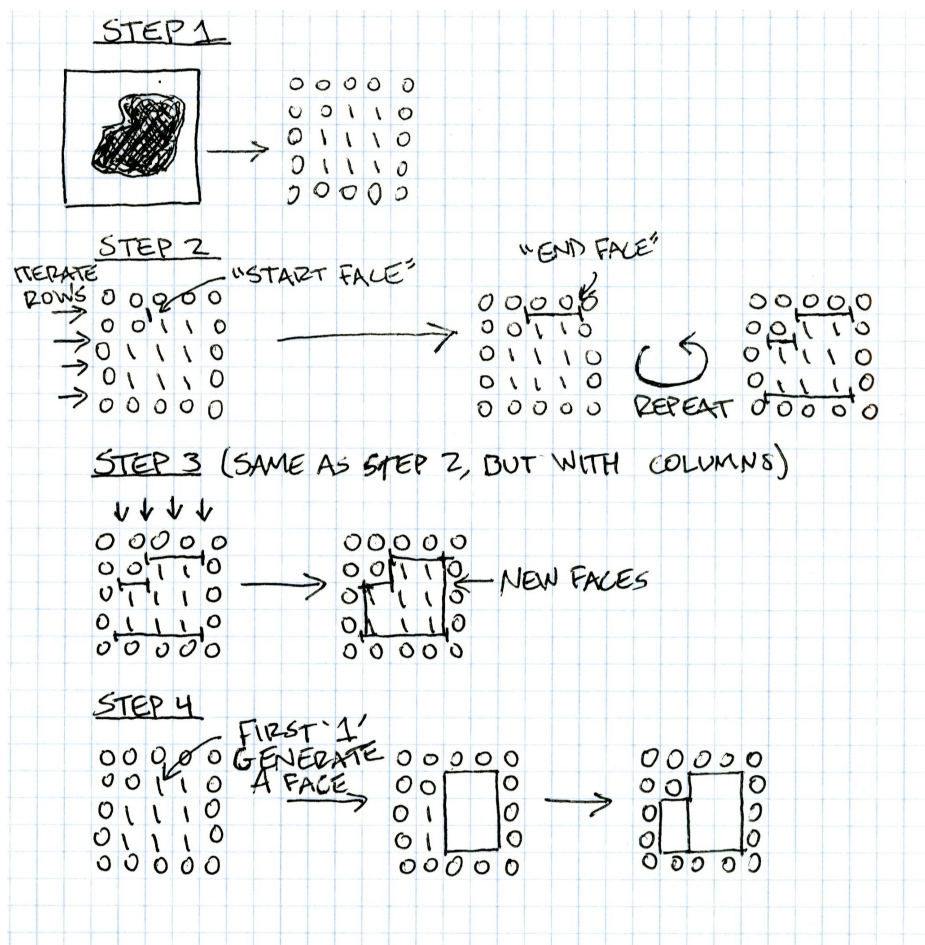 STEP 1
0 0 0 0 0
0 0 1 1 0
0 1 1 1 0
0 1 1 1 0
0 0 0 0 0
STEP 2
ITERATE
ROWS
"START FACE"
0 0 0 0 0
0 0 1 1 0
0 1 1 1 0
0 1 1 1 0
0 0 0 0 0
"END FACE"
0 0 0 0 0
0 0 1 1 0
0 1 1 1 0
0 1 1 1 0
0 0 0 0 0
REPEAT
0 0 0 0 0
0 0 1 1 0
0 1 1 1 0
0 1 1 1 0
0 0 0 0 0
STEP 3 (SAME AS STEP 2, BUT WITH COLUMNS)
0 0 0 0 0
0 0 1 1 0
0 1 1 1 0
0 1 1 1 0
0 0 0 0 0
0 0 0 0 0
0 0 1 1 0
0 1 1 1 0
0 1 1 1 0
0 0 0 0 0
NEW FACES
STEP 4
FIRST '1'
GENERATE
A FACE
0 0 0 0 0
0 0 1 1 0
0 1 1 1 0
0 1 1 1 0
0 0 0 0 0
0 0 0 0 0
0 0 0
0 1 0
0 1 0
0 0 0 0 0
0 0 0 0 0
0 0 0
0 0
0 0
0 0 0 0 0